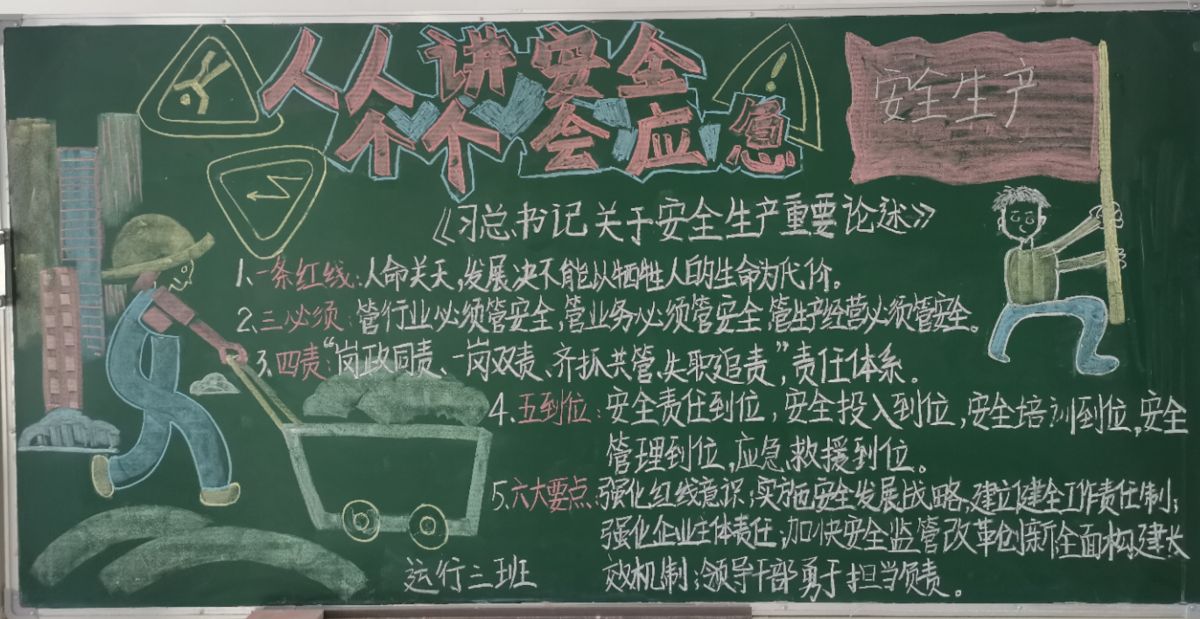 人人讲安全
个个会应急
安全生产
《习总书记关于安全生产重要论述》
1、一条红线:人命关天,发展决不能以牺牲人的生命为代价。
2、三必须:管行业必须管安全,管业务必须管安全,管生产经营必须管安全。
3、四责“岗政同责、一岗双责、齐抓共管、失职追责”,责任体系。
4、五到位:安全责任到位,安全投入到位,安全培训到位,安全
管理到位,应急救援到位。
5、六大要点:强化红线意识;实施安全发展战略;建立健全工作责任制;
强化企业主体责任;加快安全监管改革创新;全面构建长
效机制;领导干部勇于担当负责。
运行三班